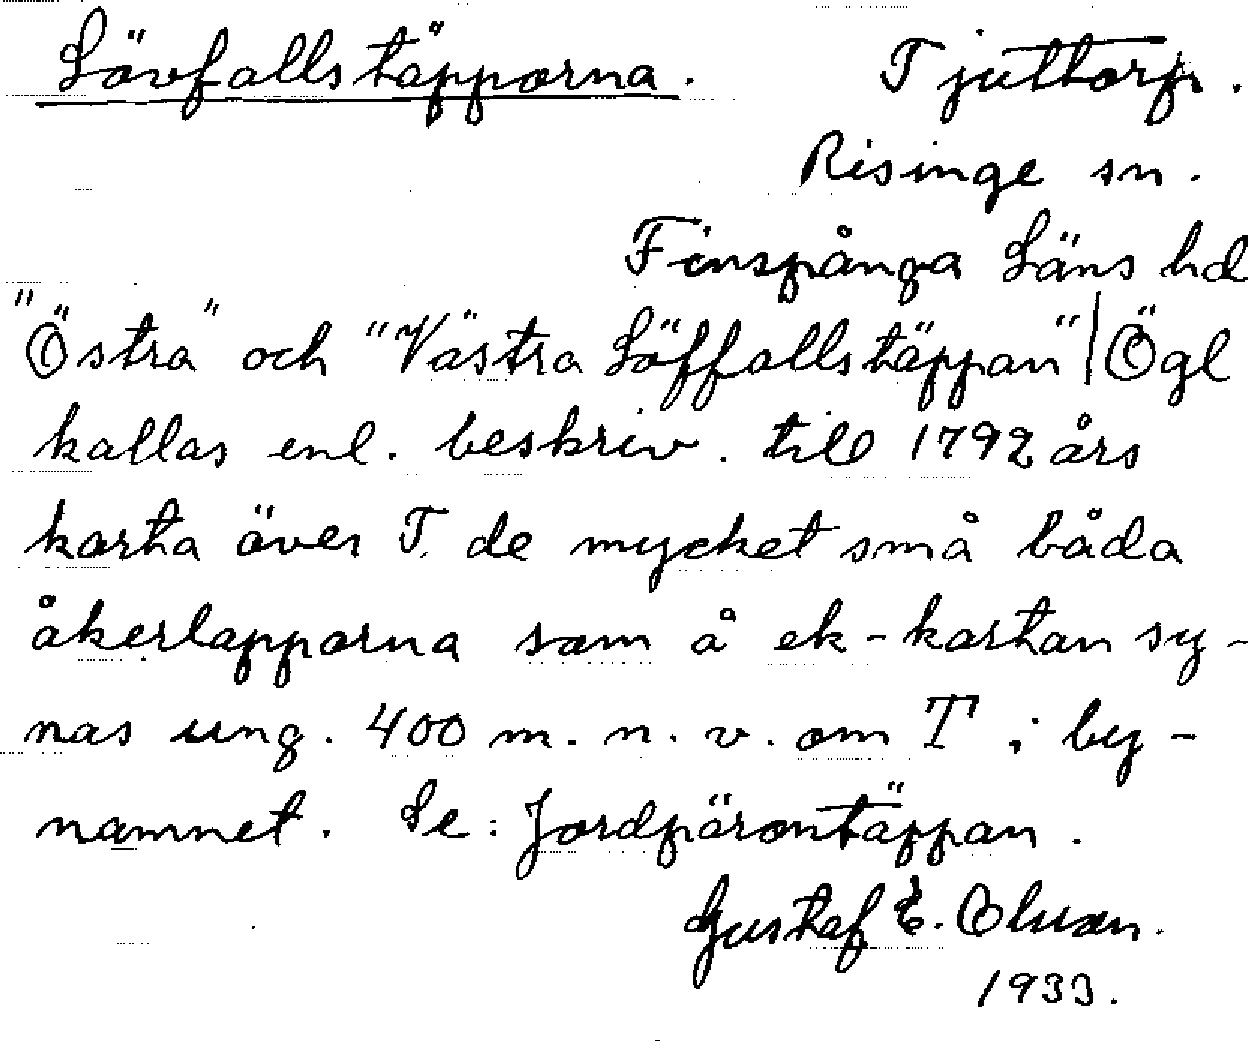 Lövfallstäpporna. Tjuttorp.
Risinge sn.
Finspånga Läns hd
"Östra" och "Västra Löffallstäppan" | Ögl
kallas enl. beskriv. till 1792 års
karta över T. de mycket små båda
åkerlapparna som å ek-kartan sy-
nas ung. 400 m. n. v. om T i by-
namnet. Se: Jordpärontäppan.
Gustaf E. Olsson.
1933.